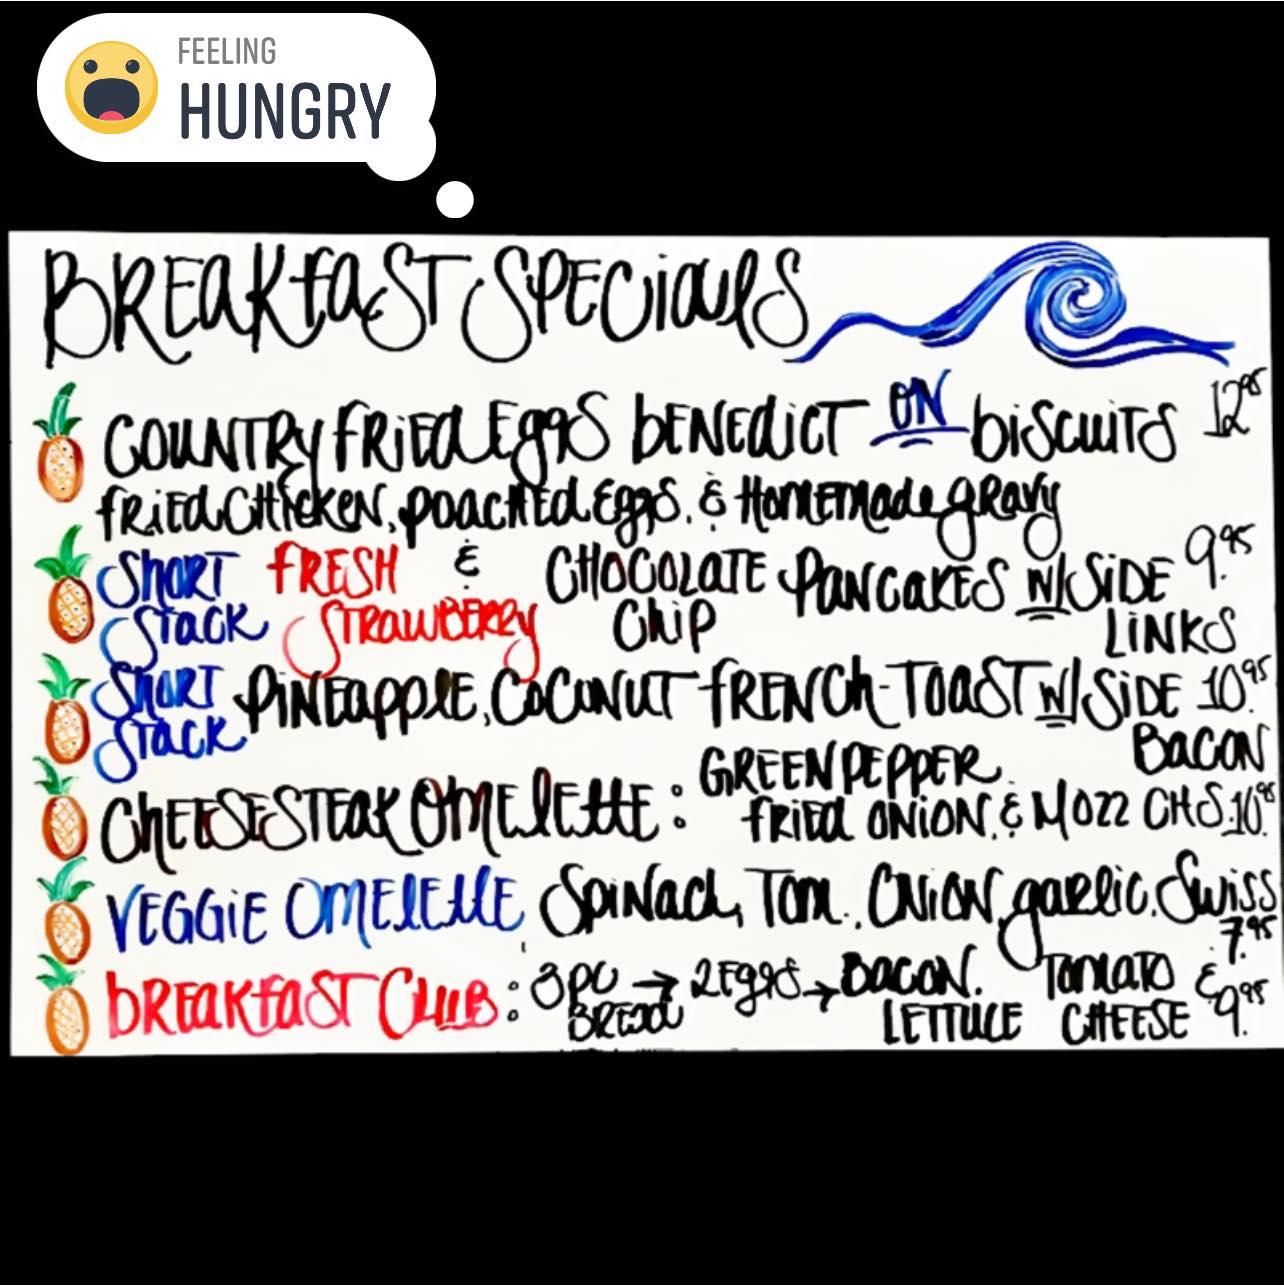 FEELING
HUNGRY
BREAKFAST SPECIALS
COUNTRY FRIED EGGS BENEDICT ON BISCUITS 12.95
FRIED CHICKEN, POACHED EGGS, & HOMEMADE GRAVY
SHORT STACK FRESH STRAWBERRY & CHOCOLATE CHIP PANCAKES W/ SIDE LINKS 9.95
SHORT STACK PINEAPPLE, COCONUT FRENCH-TOAST W/ SIDE BACON 10.95
CHEESESTEAK OMELETTE: GREEN PEPPER, FRIED ONION, & MOZZ CHS. 10.95
VEGGIE OMELETTE SPINACH, TOM., ONION, GARLIC, SWISS 7.95
BREAKFAST CLUB: 3 PC BREAD → 2 EGGS → BACON. LETTUCE TOMATO & CHEESE 9.95